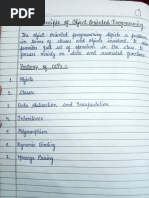 Principle of Object Oriented Programming
The object oriented programming depicts a problem
in terms of classes and objects involved. It
provides full set of operation in the class. It
focuses mainly on data and associated functions.
Features of OOPs :-
1. Objects
2. Classes
3. Data Abstraction and Encapsulation
4. Inheritance
5. Polymorphism
6. Dynamic Binding
7. Message Passing